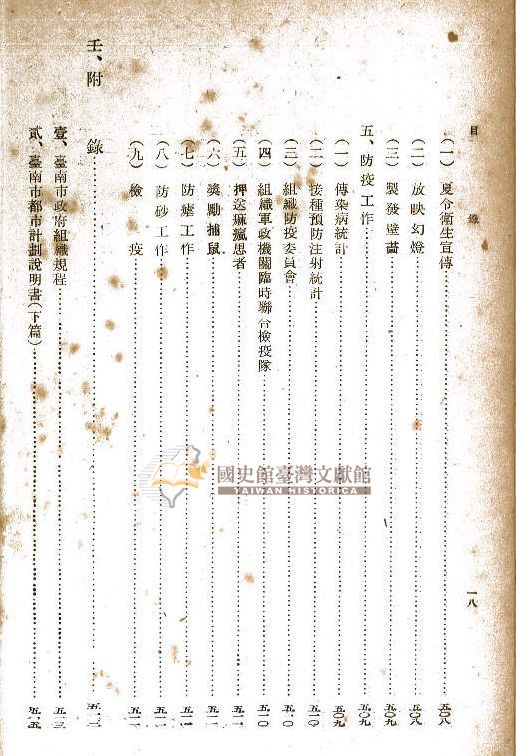 目錄
一八
(一) 夏令衛生宣傳……五〇八
(二) 放映幻燈……五〇八
(三) 製發壁畫……五〇九
五、防疫工作……五〇九
(一) 傳染病統計……五〇九
(二) 接種預防注射統計……五一〇
(三) 組織防疫委員會……五一〇
(四) 組織軍政機關臨時聯合檢疫隊……五一〇
(五) 押送痳瘋患者……五一一
(六) 獎勵捕鼠……五一一
(七) 防瘧工作……五一一
(八) 防砂工作……五一一
(九) 檢疫……五一二
壬、附錄……
壹、臺南市政府組織規程……
貳、臺南市都市計劃說明書(下篇)……
國史館臺灣文獻館
TAIWAN HISTORICA